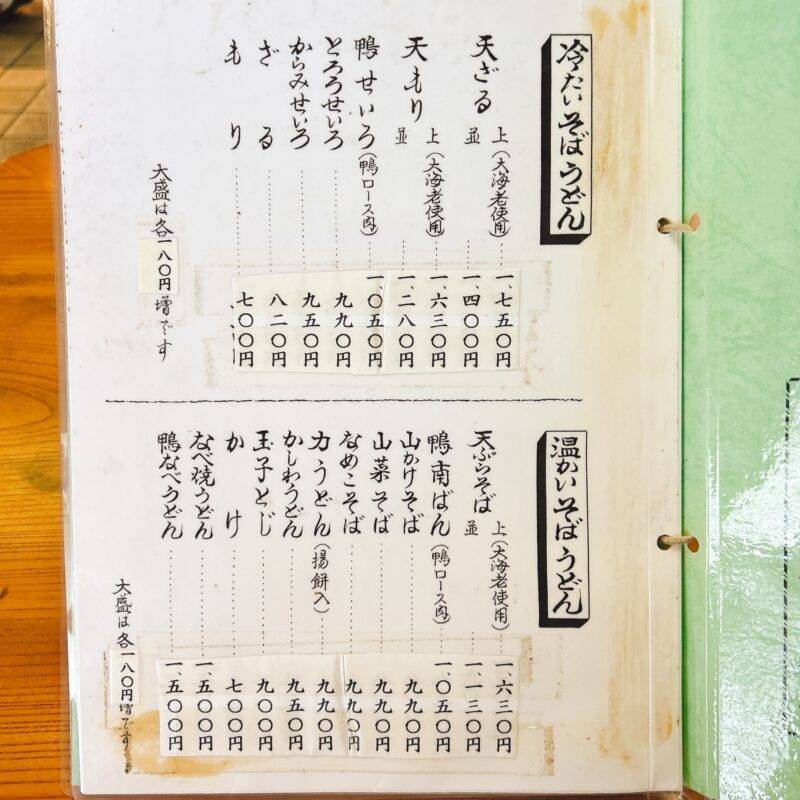 冷たいそばうどん
天ざる 上(大海老使用) 一、七五〇円
並 一、四〇〇円
天もり 上(大海老使用) 一、六三〇円
並 一、二八〇円
鴨せいろ(鴨ロース肉) 一、〇五〇円
とろろせいろ 九九〇円
からみせいろ 九五〇円
ざる 八二〇円
もり 七〇〇円
大盛は各一八〇円増です
温かいそばうどん
天ぷらそば 上(大海老使用) 一、六三〇円
並 一、一三〇円
鴨南ばん(鴨ロース肉) 一、〇五〇円
山かけそば 九九〇円
山菜そば 九九〇円
なめこそば 九九〇円
力うどん(揚餅入) 九九〇円
かしわうどん 九五〇円
玉子とじ 九〇〇円
かけ 七〇〇円
なべ焼うどん 一、五〇〇円
鴨なべうどん 一、五〇〇円
大盛は各一八〇円増です